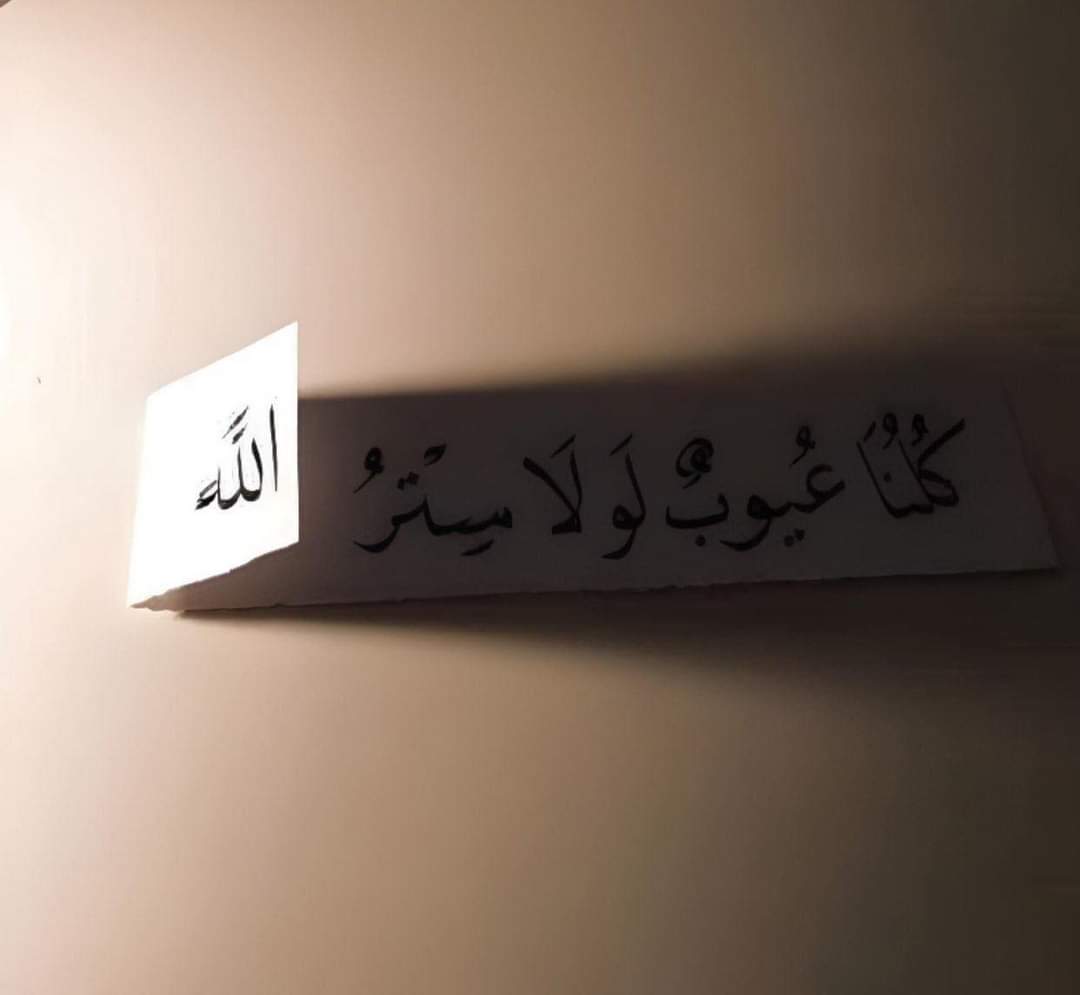 كُلُنَا عُيوبٌ لَولَا سِتْرُ اللَّه